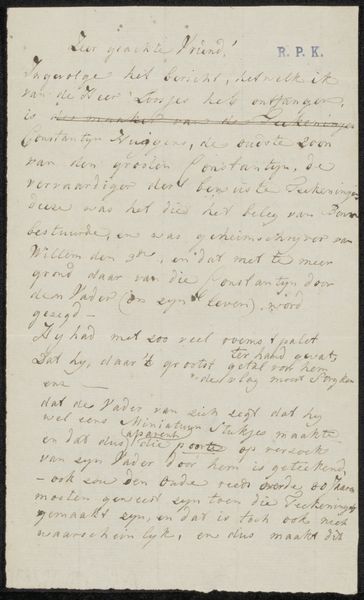 Zeer geachte Vriend!
R. P. K.
Ingevolge het bericht, det welk ik
van de Heer Loosjes heb ontfangen,
is des maaker van de Teekeningen
Constantyn Huijgens, de oudste zoon
van den grooten Constantyn, de
vervaardiger der bewuste Teekeningen
deese was het die het beleg van Bonn
bestuurde, en was geheimschryver van
Willem den 3de, en dat met te meer
grond daar van die Constantyn door
den Vader (in syn leven), word
gezegd —
Hy had met soo veel roems 't palet
ter hand gevat
Dat hy, daar 't grootst getal voor hem
de vlag moest stryken
enz —
dat de Vader van sich zegt dat hy
wel eens Miniatuur Stukjes maakte
en dat dus (apparent) die op versoek
van syn Vader door hem is geteekend,
— ook sou den oude reets over de 80 Jaren
moeten geweest syn toen die Teekeningen
gemaakt syn, en dat is toch ook niet
waarscheinlyk, en dus maakt dit